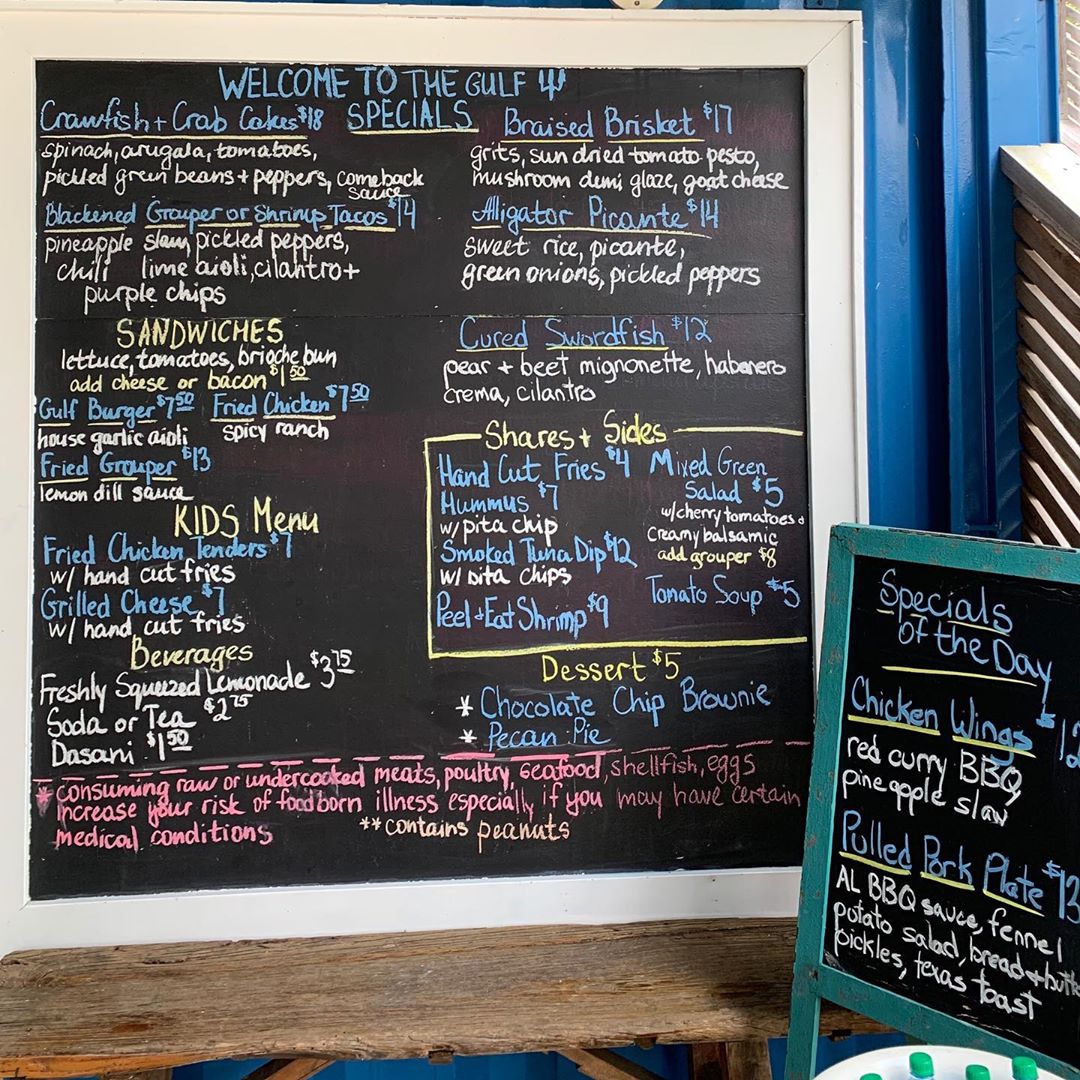 WELCOME TO THE GULF
SPECIALS
Crawfish + Crab Cakes $18
spinach, arugala, tomatoes,
pickled green beans + peppers, comeback
sauce
Blackened Grouper or Shrimp Tacos $14
pineapple slaw, pickled peppers,
chili lime aioli, cilantro +
purple chips
Braised Brisket $17
grits, sun dried tomato pesto,
mushroom demi glaze, goat cheese
Alligator Picante $14
sweet rice, picante,
green onions, pickled peppers
Cured Swordfish $12
pear + beet mignonette, habanero
crema, cilantro
SANDWICHES
lettuce, tomatoes, brioche bun
add cheese or bacon $1 50
Gulf Burger $7 50 Fried Chicken $7 50
house garlic aioli spicy ranch
Fried Grouper $13
lemon dill sauce
KIDS Menu
Fried Chicken Tenders $7
w/ hand cut fries
Grilled Cheese $7
w/ hand cut fries
Beverages
Freshly Squeezed Lemonade $3 75
Soda or Tea $2 75
Dasani $1 50
Shares + Sides
Hand Cut Fries $4
Hummus $7
w/ pita chip
Smoked Tuna Dip $12
w/ pita chips
Peel + Eat Shrimp $9
Mixed Green
Salad $5
w/ cherry tomatoes +
creamy balsamic
add grouper $8
Tomato Soup $5
Dessert $5
* Chocolate Chip Brownie
* Pecan Pie
* consuming raw or undercooked meats, poultry, seafood, shellfish, eggs
increase your risk of foodborn illness especially if you may have certain
medical conditions **contains peanuts
Specials
Of the Day
Chicken Wings $12
red curry BBQ,
pineapple slaw
Pulled Pork Plate $13
AL BBQ sauce, fennel
potato salad, bread + butt
pickles, texas toast